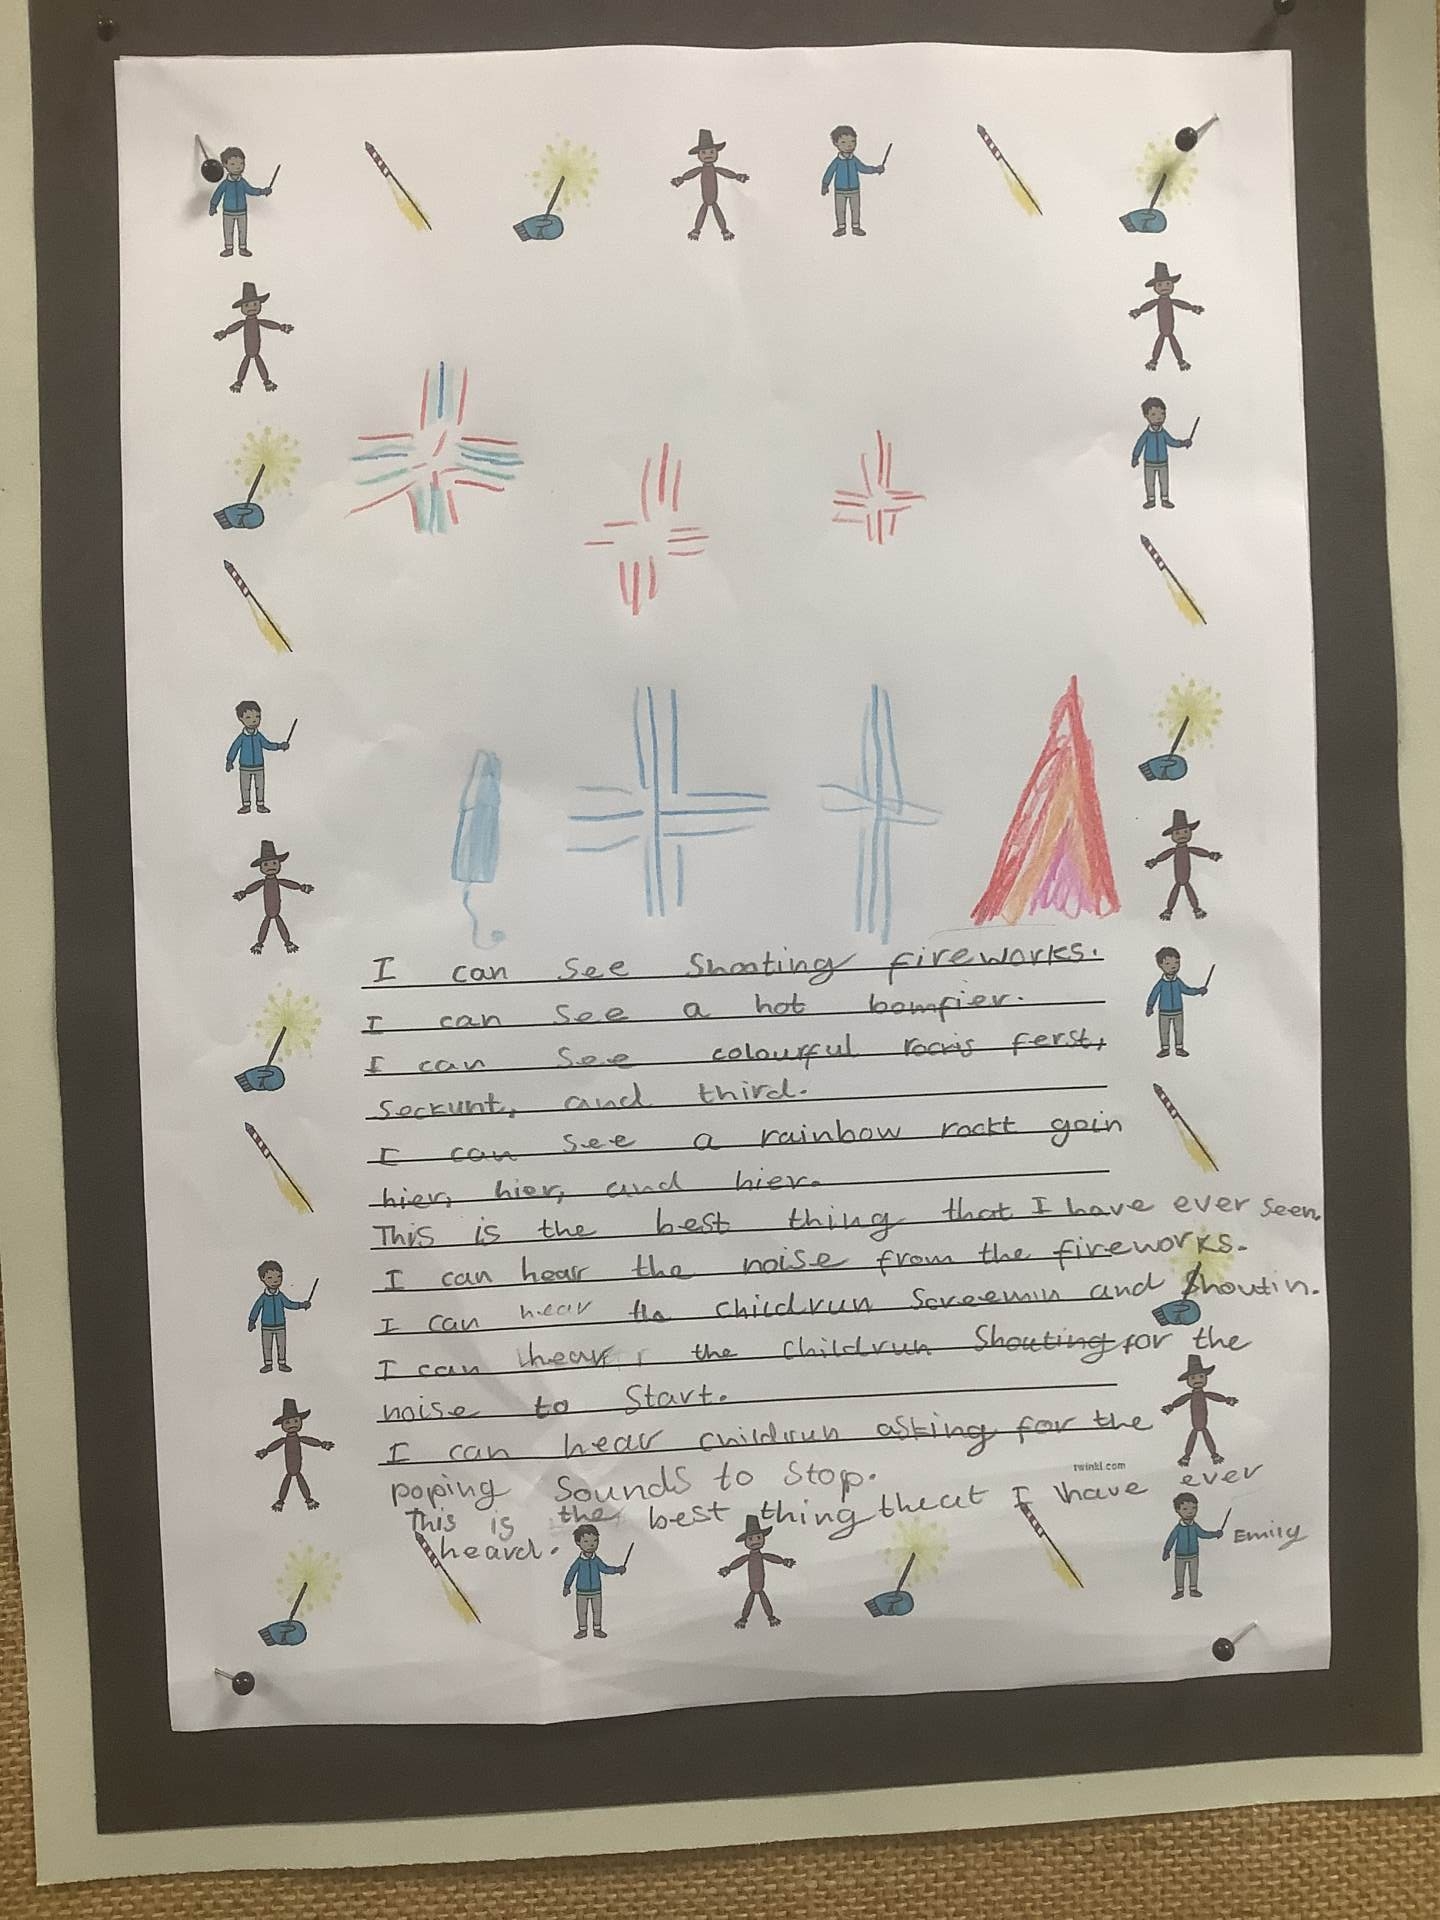 I can see Shooting fireworks.
I can see a hot bomfier.
I can see colourful rocris ferst,
seckunt, and third.
I can see a rainbow rockt goin
hier, hier, and hier.
This is the best thing that I have ever seen.
I can hear the noise from the fireworks.
I can hear the childrun Screemin and Shoutin.
I can hear the childrun Shouting for the
noise to Start.
I can hear childrun asking for the
poping Sounds to Stop.
twinkl.com
This is the best thing theat I have ever
heard.
Emily